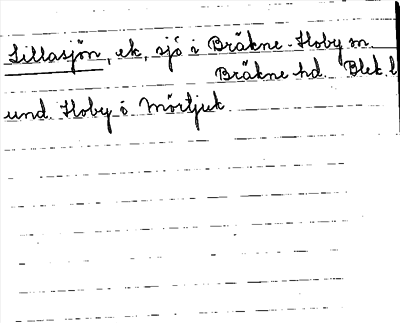 Lillasjön, ek, sjö i Bräkne-Hoby sn.
Bräkne hd. Blek. l
und. Hoby o Mörtjuk.